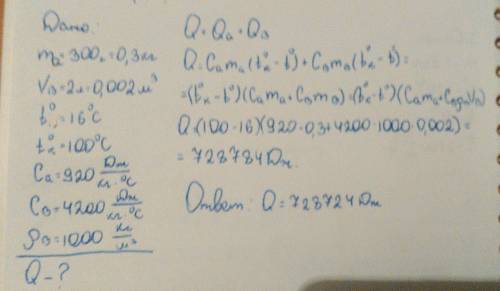 Дано:
mа = 300г = 0,3 кг
Vв = 2л = 0,002 м³
t° = 16°C
tк° = 100°C
Cа = 920 Дж/кг·°C
Cв = 4200 Дж/кг·°C
ρв = 1000 кг/м³
Q - ?
Q = Qа + Qв
Q = Cаmа(tк° - t°) + Cвmв(tк° - t°) =
= (tк° - t°)(Cаmа + Cвmв) = (tк° - t°)(Cаmа + CвρвVв)
Q = (100 - 16)(920 · 0,3 + 4200 · 1000 · 0,002) =
= 728784 Дж.
Ответ: Q = 728724 Дж